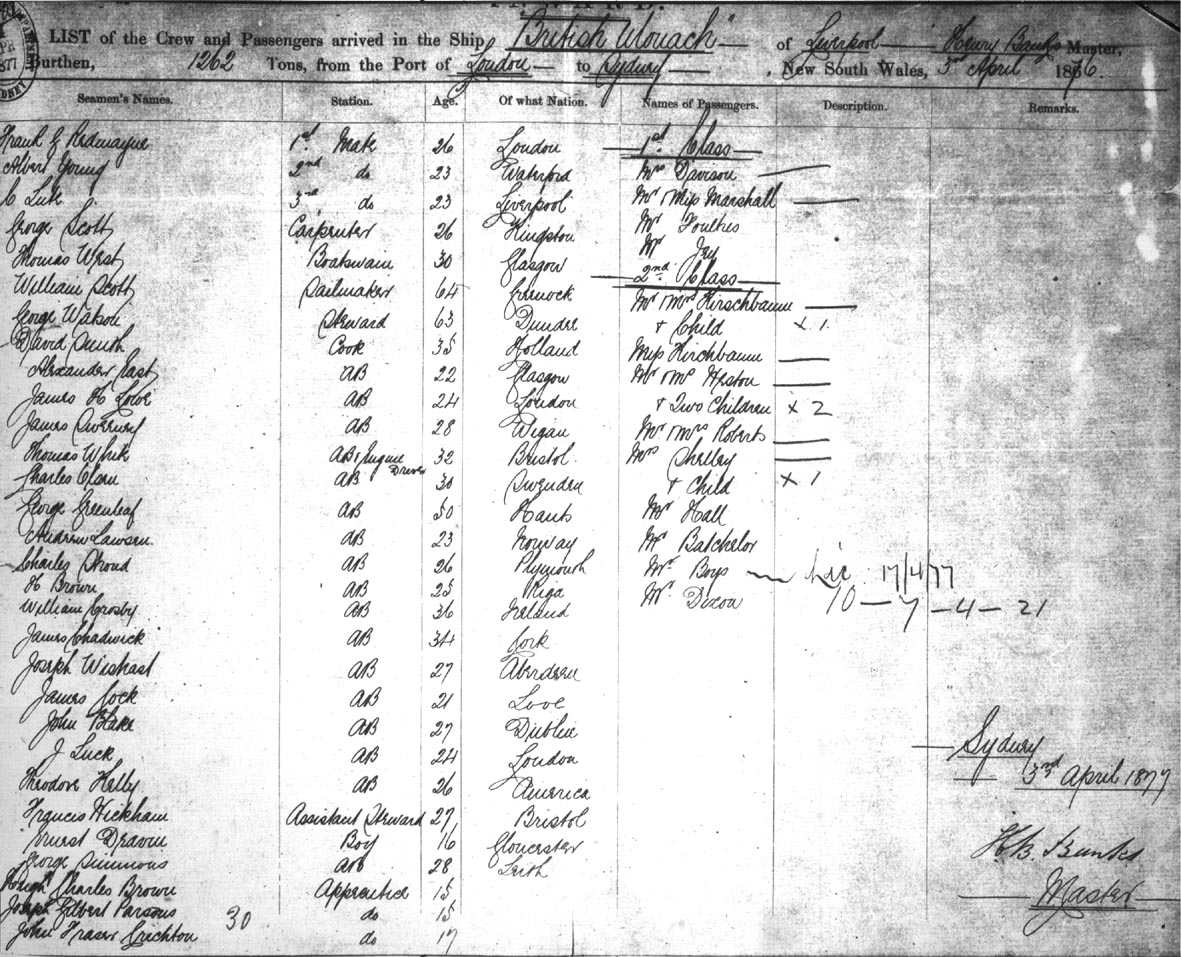 LIST of the Crew and Passengers arrived in the Ship "British Monach" of Liverpool Henry Banks Master,
Burthen, 1262 Tons, from the Port of London to Sydney, New South Wales, 3rd April 1876.
Seamen's Names. Station. Age. Of what Nation. Names of Passengers. Description. Remarks.
Frank G Redmayne 1st Mate 26 London 1st Class
Albert Young 2nd do 23 Waterford Mrs Davison
C Luth 3rd do 23 Liverpool Mr & Miss Marshall
George Scott Carpenter 26 Kingston Mr Foulkes
Thomas West Boatswain 30 Glasgow Mr Jey
William Scott Sailmaker 64 Greenock 2nd Class
George Watson Steward 63 Dundee Mr & Mrs Hirschbaum
David Smith Cook 35 Holland & Child x 1
Alexander East AB 22 Glasgow Miss Hirchbaum
James H Lowe AB 24 London Mr & Mrs Heston
James AB 28 Wigan & Two Children x 2
Thomas White AB & Engine Driver 32 Bristol Mr & Mrs Roberts
Charles Clam AB 30 Sweden Mrs Shelley
George Greenleaf AB 50 Hants & Child x 1
Andrew Lawsen AB 23 Norway Mr Hall
Charles Stroud AB 26 Plymouth Mr Batchelor
H Brown AB 25 Riga Mr Boys 17/4/77
William Crosby AB 36 Ireland Mr Dixon 10 – 7 – 4 – 21
James Chadwick AB 34 Cork
Joseph Wishast AB 27 Aberdeen
James Cock AB 21 Looe
John Blake AB 27 Dublin
J Luck AB 24 London Sydney
Theodore Kelly AB 26 America 3rd April 1877
Francis Wickham Assistant Steward 27 Bristol
Ernest Dravin Boy 16 Gloucester
George Simmons AB 28 Leith H.B. Banks
Hough Charles Brown Apprentice 15 Master
Joseph Gilbert Parsons do 15
John Fraser Crichton 30 do 17